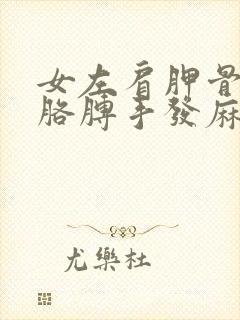 女左肩胛骨
胳膊手發麻
尤樂杜